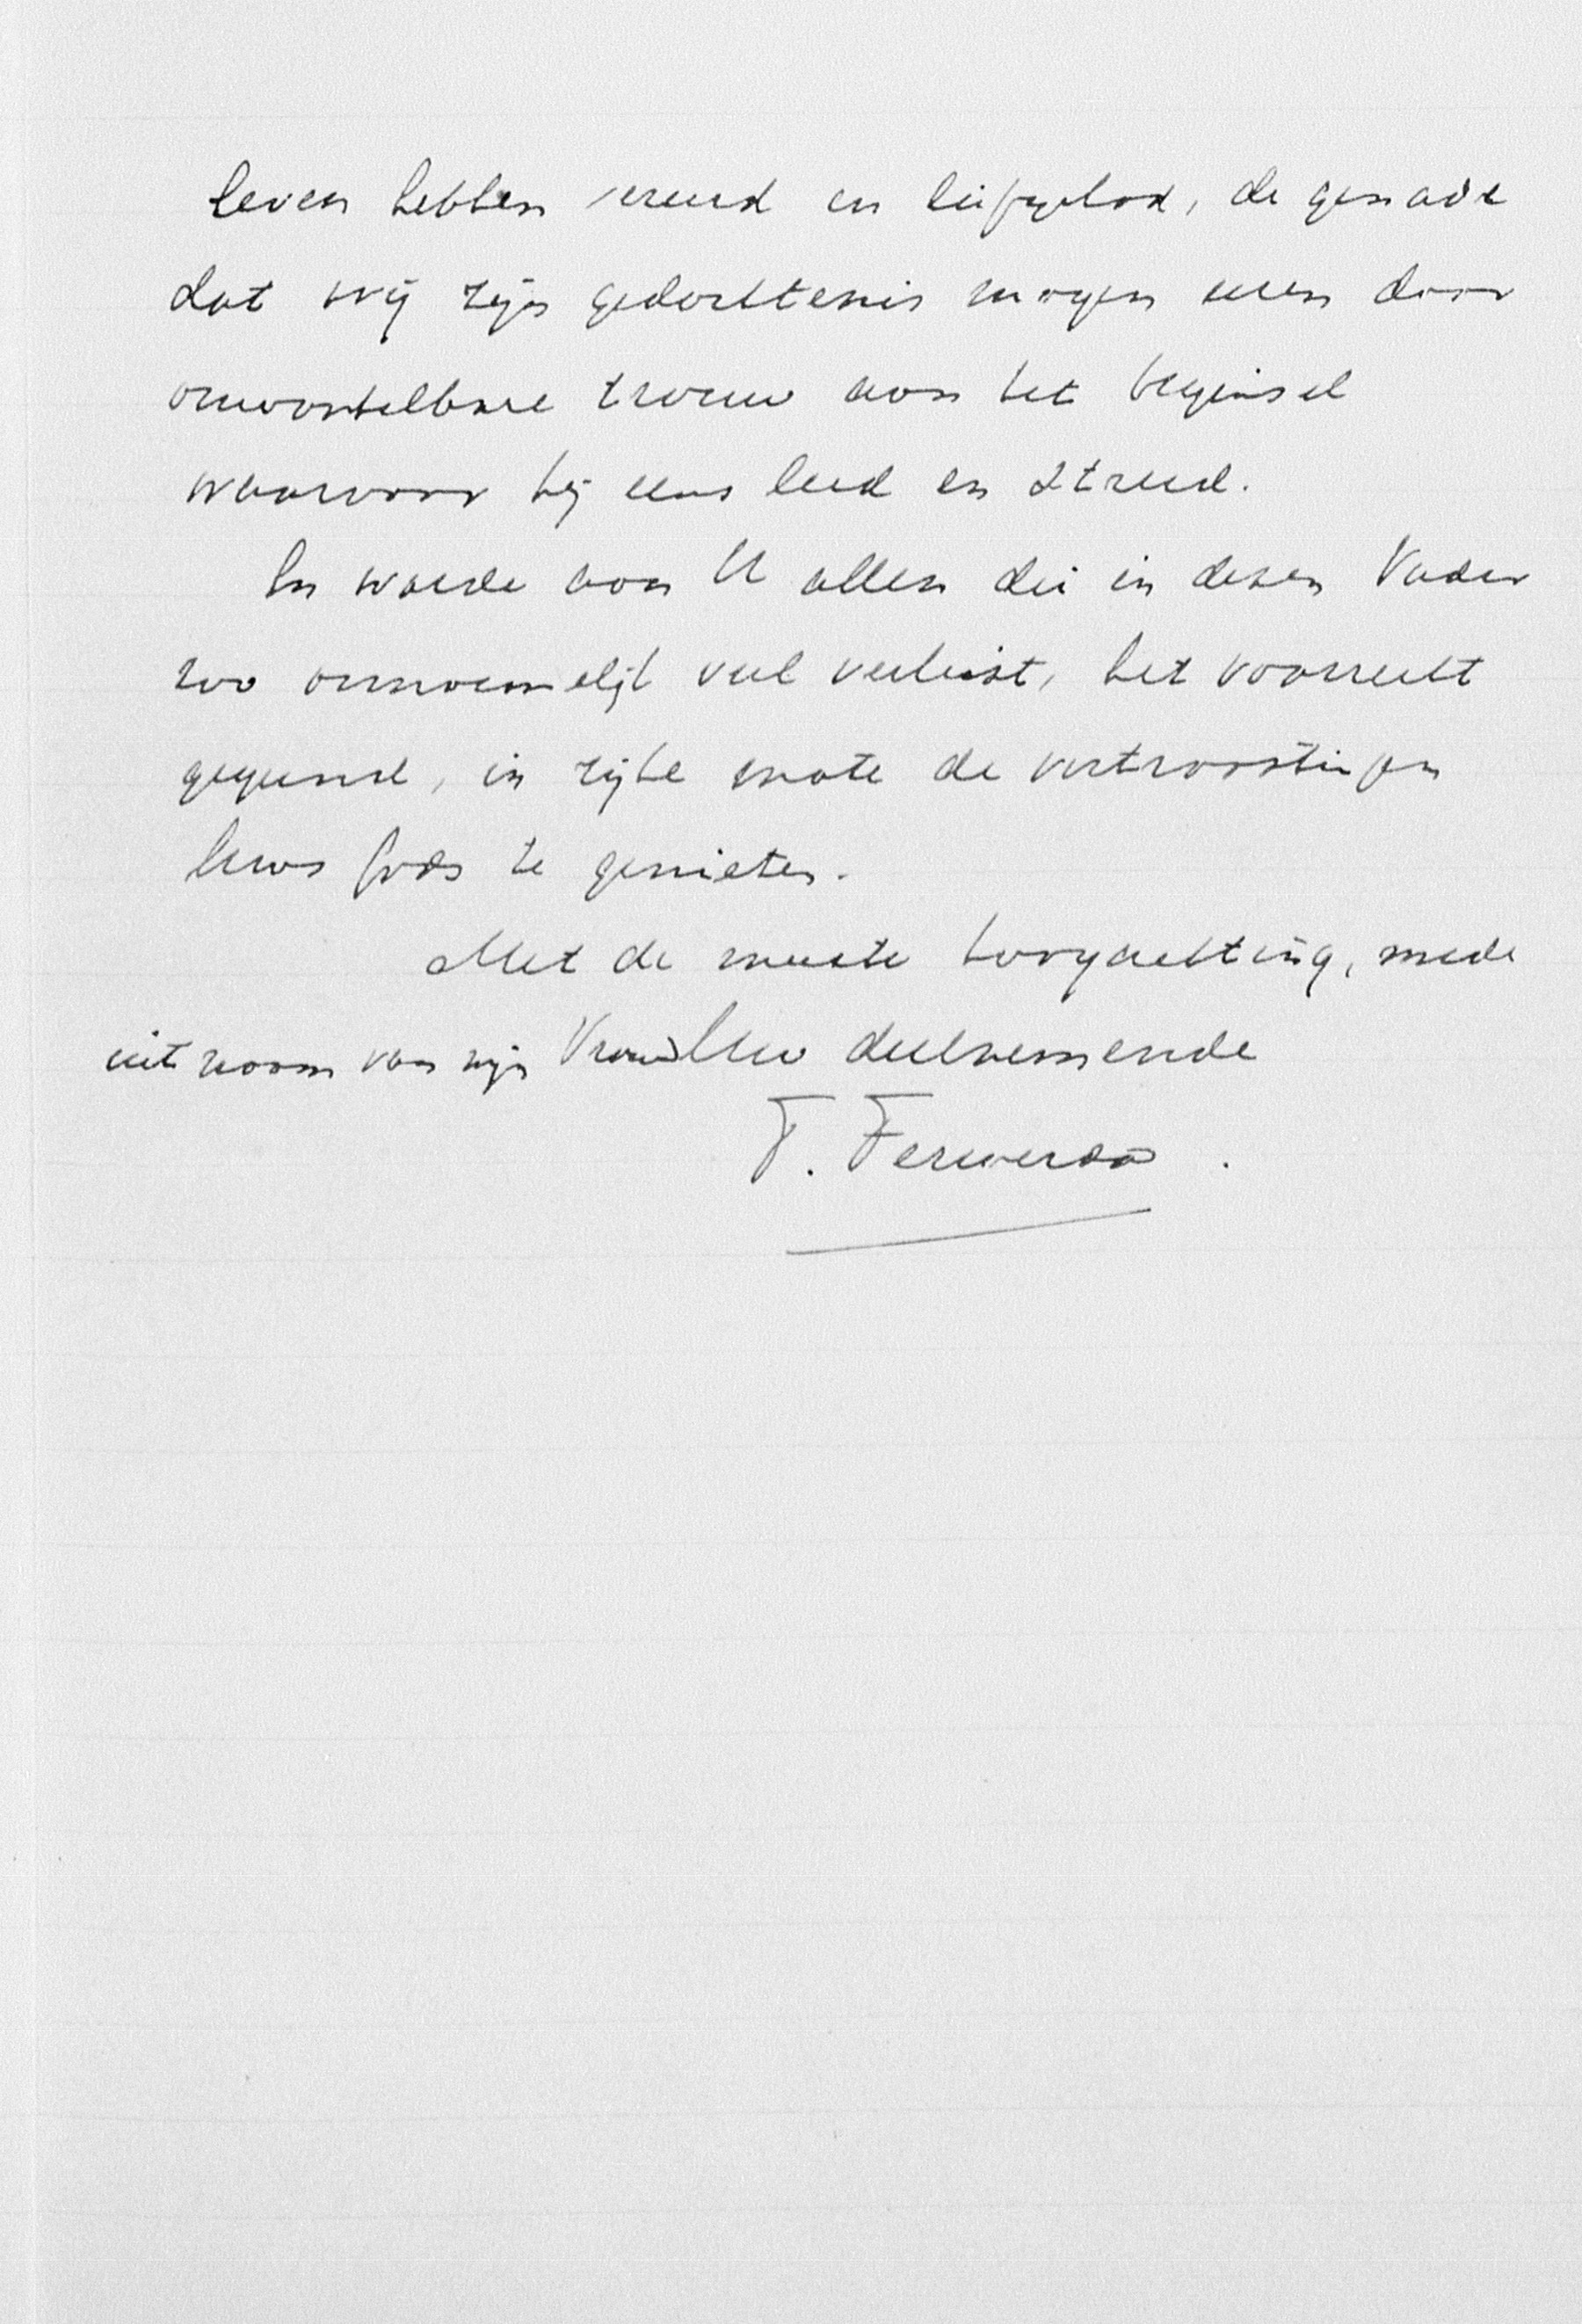 leven hebben vereerd en liefgehad, de genade
dat wij zijn gedachtenis mogen eeren door
onwankelbare trouw aan het beginsel
waarvoor hij eens leed en streed.
En worde aan U allen die in dezen Vader
zoo onnoemelijk veel verliest, het voorrecht
gegund, in rijke mate de vertroostingen
Uws Gods te genieten.
Met de meeste hoogachting, mede
uit naam van mijn Vrouw Uw deelnemende
F. Ferwerda.